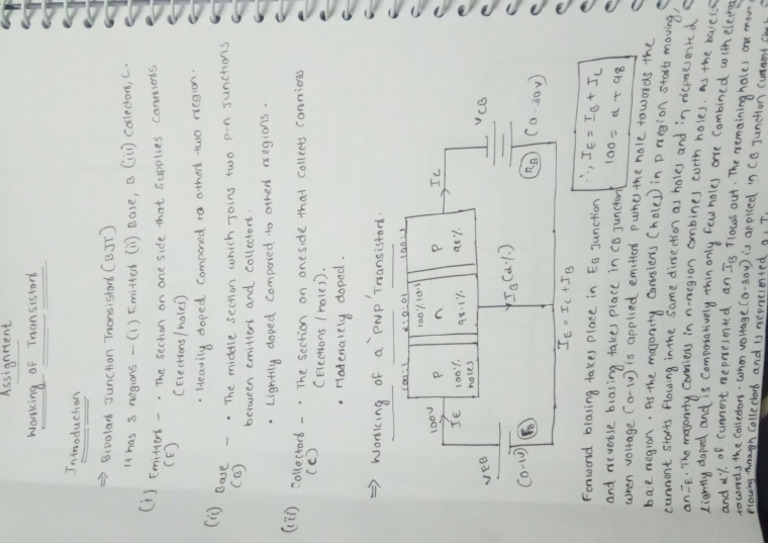 Assignment
Working of Transistor
Introduction
⇒ Bipolar Junction Transistor (BJT)
It has 3 regions – (i) Emitter (ii) Base, B (iii) Collector, C.
(i) Emitter – • The section on one side that supplies carriers
(E) (Electrons/holes)
• Heavily doped compared to other two region.
(ii) Base – • The middle section which joins two p-n junctions
(B) between emitter and collector.
• Lightly doped compared to other regions.
(iii) Collector – • The section on oneside that collects carriers
(C) (Electrons/holes).
• Moderately doped.
⇒ Working of a 'PNP' Transistor.
100:1
100:1
100V
IE
P
100%
holes
100%
n
98.1%
P
98%
IC
VEB
(0-1V)
FB
IB (2%)
VCB
(0-30V)
RB
IE = IC + IB
Forward biasing takes place in EB Junction
and reverse biasing takes place in CB Junction
∴, IE = IB + IC
100 = 2 + 98
when voltage (0-1V) is applied emitter pushes the hole towards the
base region. As the majority carriers (holes) in p region starts moving,
current starts flowing in the same direction as holes and is represented
as IE. The majority carriers in n-region combines with holes. As the base is
lightly doped and is comparatively thin only few holes are combined with
and 2% of current represented as IB flows out. The remaining holes are
towards the collector. when voltage (0-30V) is applied in CB Junction current
flowing through collector and is represented as I